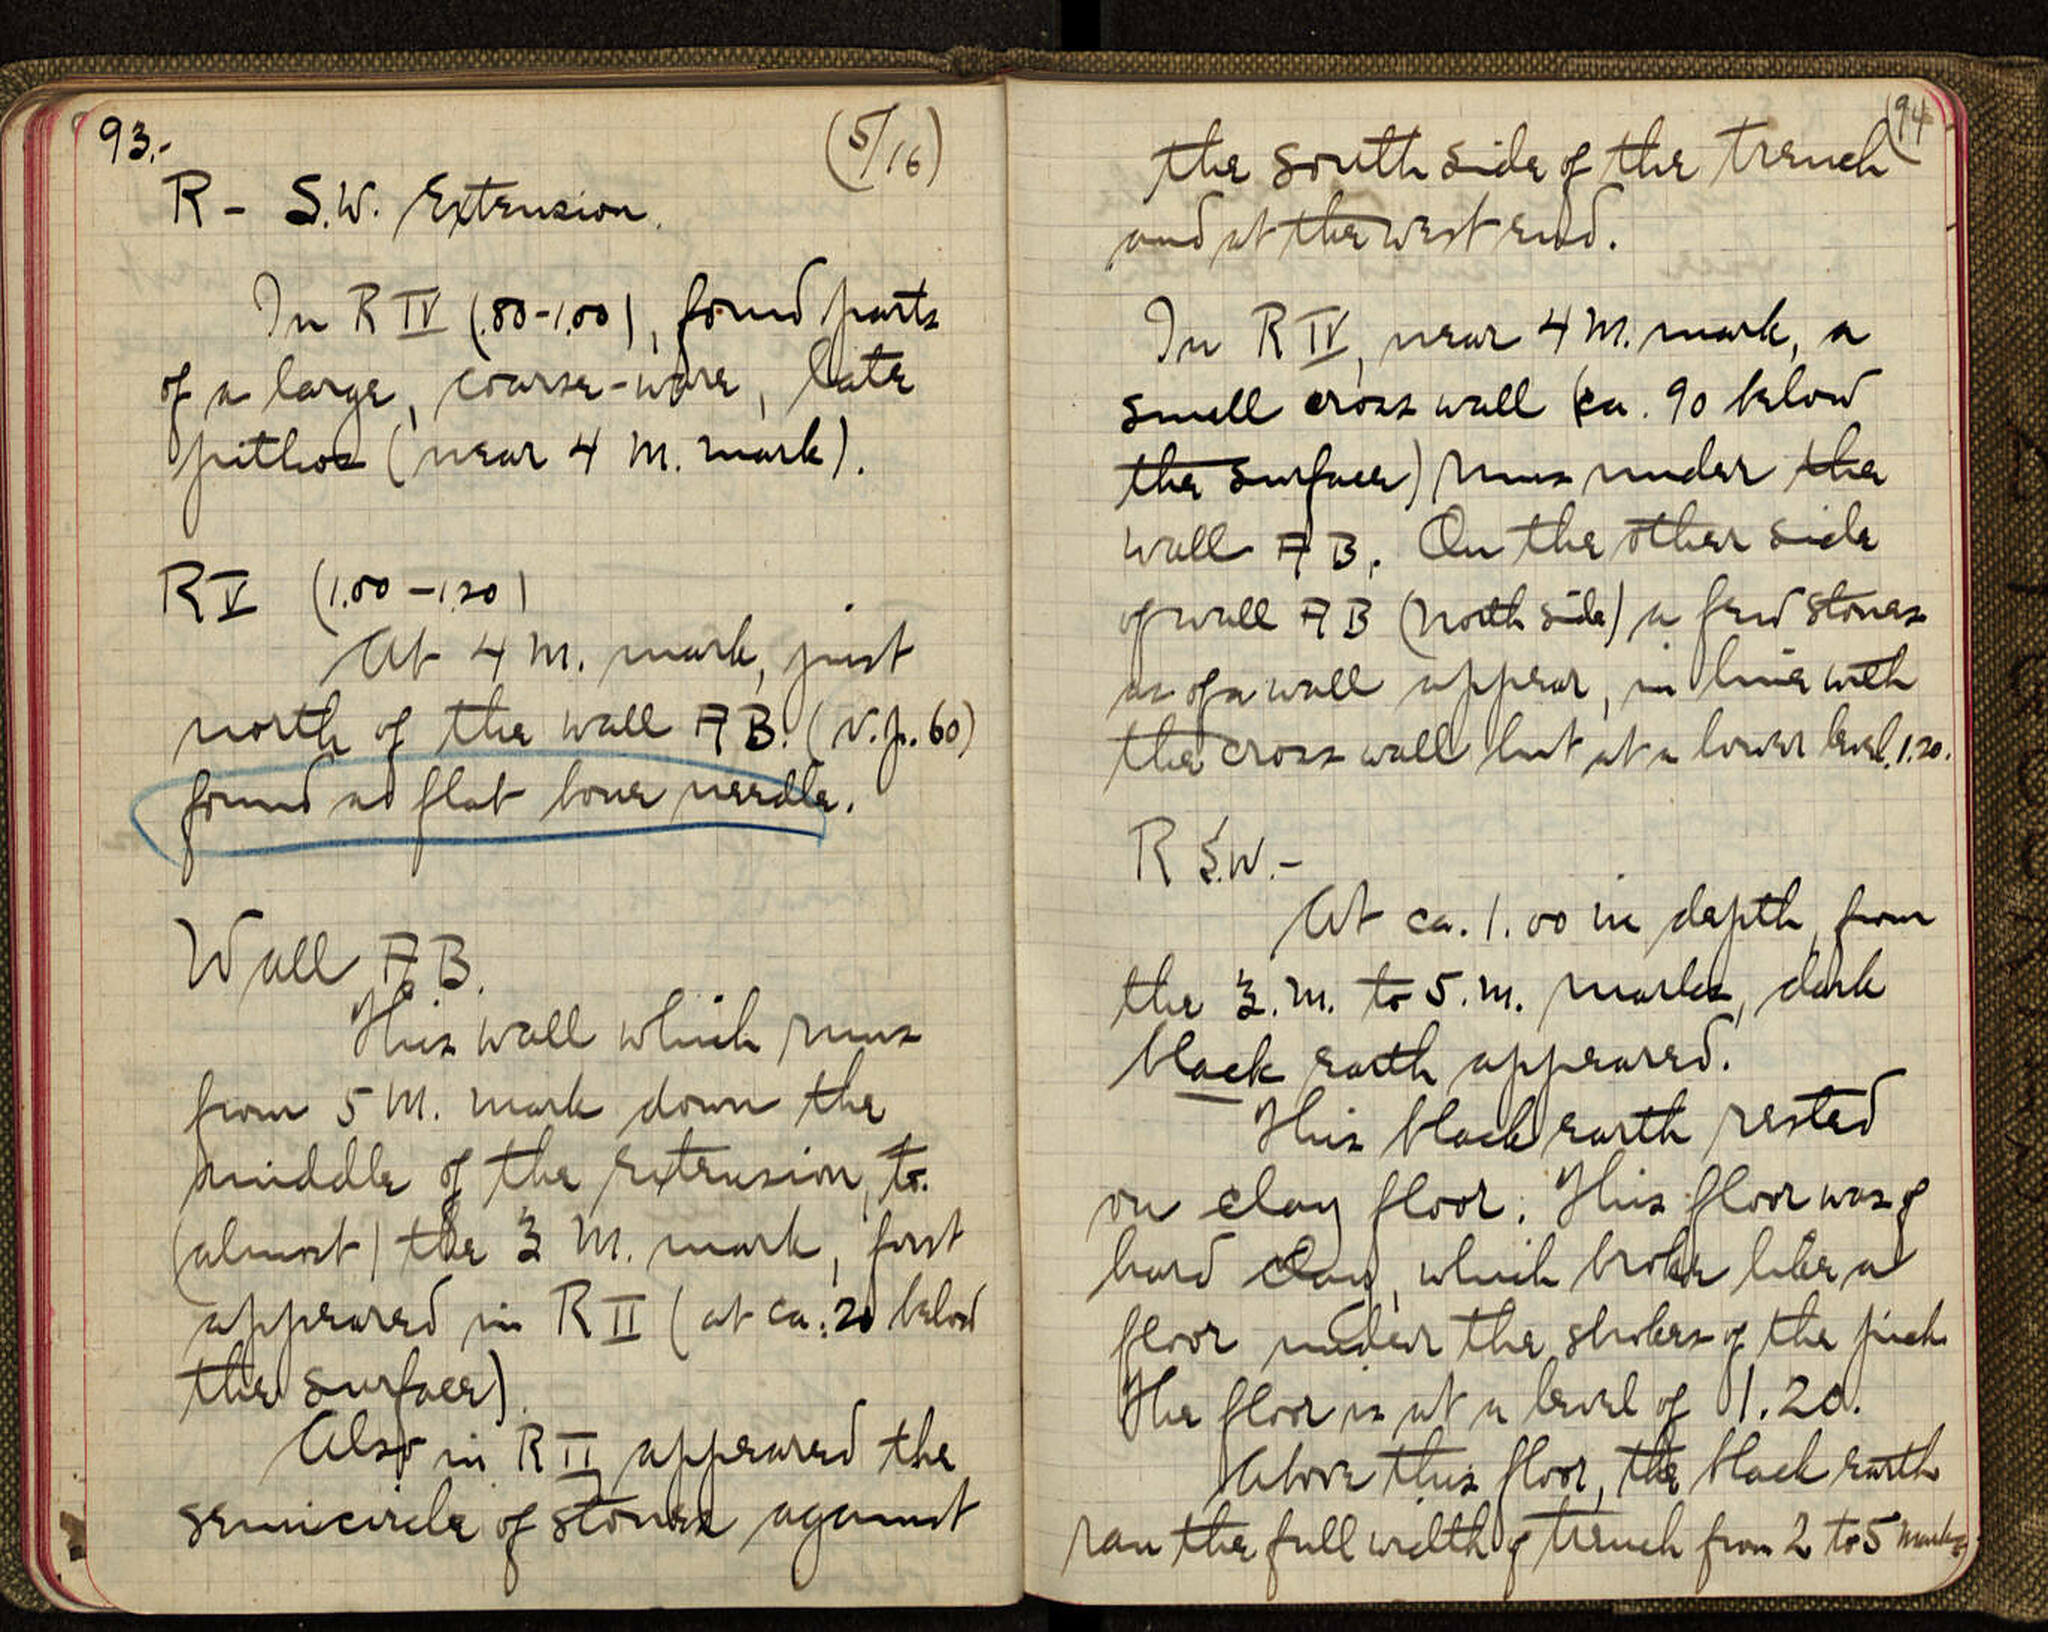 93.-
(5/16)
R - S.W. Extension.
In R IV (.80-1.00), found parts
of a large, coarse-ware, late
pithos (near 4 M. mark).
R V (1.00-1.20)
At 4 M. mark, just
north of the wall AB. (v.p. 60)
found a flat bone needle.
Wall AB.
This wall which runs
from 5 M. mark down the
middle of the extension, to
(almost) the 3 M. mark, first
appeared in R II (at ca. .20 below
the surface).
Also in R II appeared the
semicircle of stones against
94
the south side of the trench
and at the west end.
In R IV, near 4 M. mark, a
small cross wall (ca. 90 below
the surface) runs under the
wall AB. On the other side
of wall AB (north side) a few stones
as of a wall appear, in line with
the cross wall but at a lower level, 1.20.
R S.W. -
At ca. 1.00 in depth, from
the 3. M. to 5. M. marks, dark
black earth appeared.
This black earth rested
on clay floor. This floor was of
hard clay, which broke like a
floor under the strokes of the pick.
The floor is at a level of 1.20.
Above this floor, the black earth
ran the full width of trench from 2 to 5 marks.